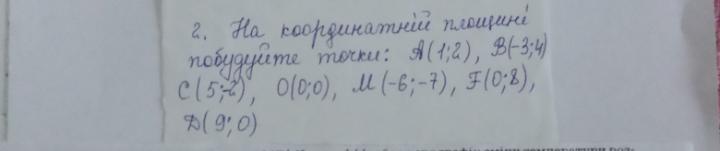 2. На координатній площині
побудуйте точки: A(1;2), B(-3;4)
C(5;-2), O(0;0), M(-6;-7), F(0;8),
D(9;0)